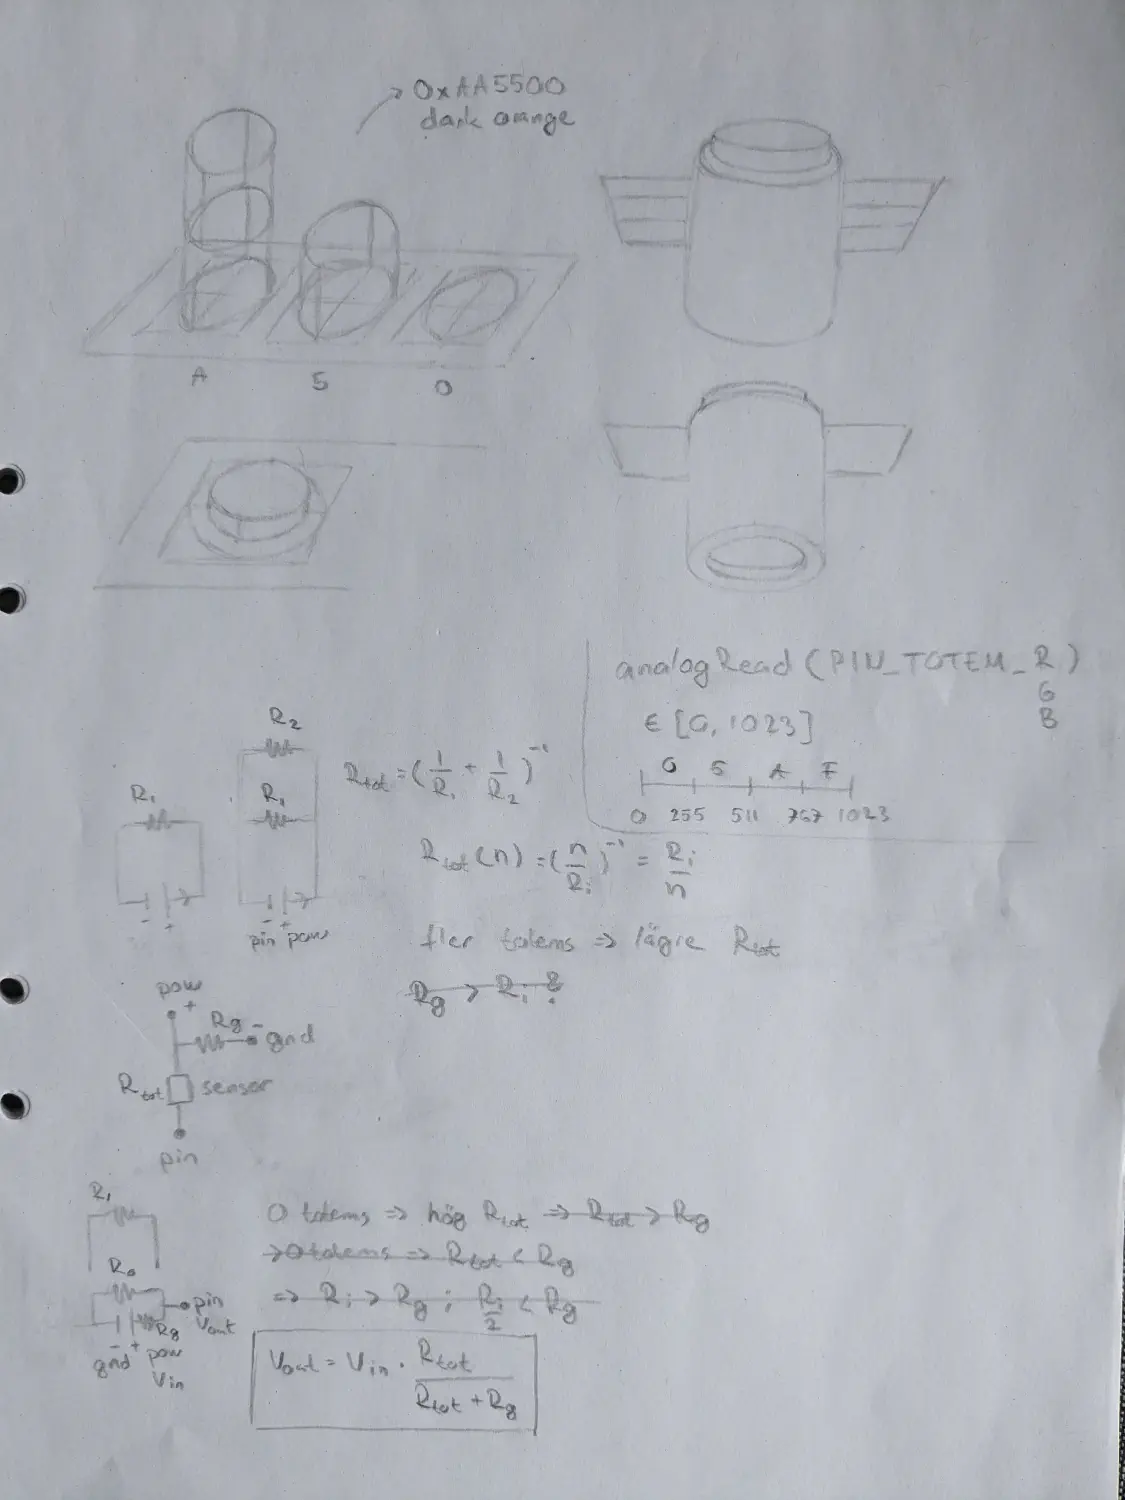 0xAA5500
dark orange
A 5 0
analogRead (PIN_TOTEM_R)
G
B
∈ [0, 1023]
0 5 A F
0 255 511 767 1023
R₁
R₂
R₁
- +
- +
pin pow
Rtot = (1/R₁ + 1/R₂)⁻¹
Rtot(n) = (n/Ri)⁻¹ = Ri/n
fler totems => lägre Rtot
Rg > Ri ?
pow
+
Rg - gnd
Rtot sensor
pin
R₁
R₀
pin
Rg Vout
- +
gnd pow
Vin
0 totems => hög Rtot => Rtot > Rg
>0 totems => Rtot < Rg
=> Ri > Rg ; Ri/2 < Rg
Vout = Vin · Rtot/(Rtot + Rg)